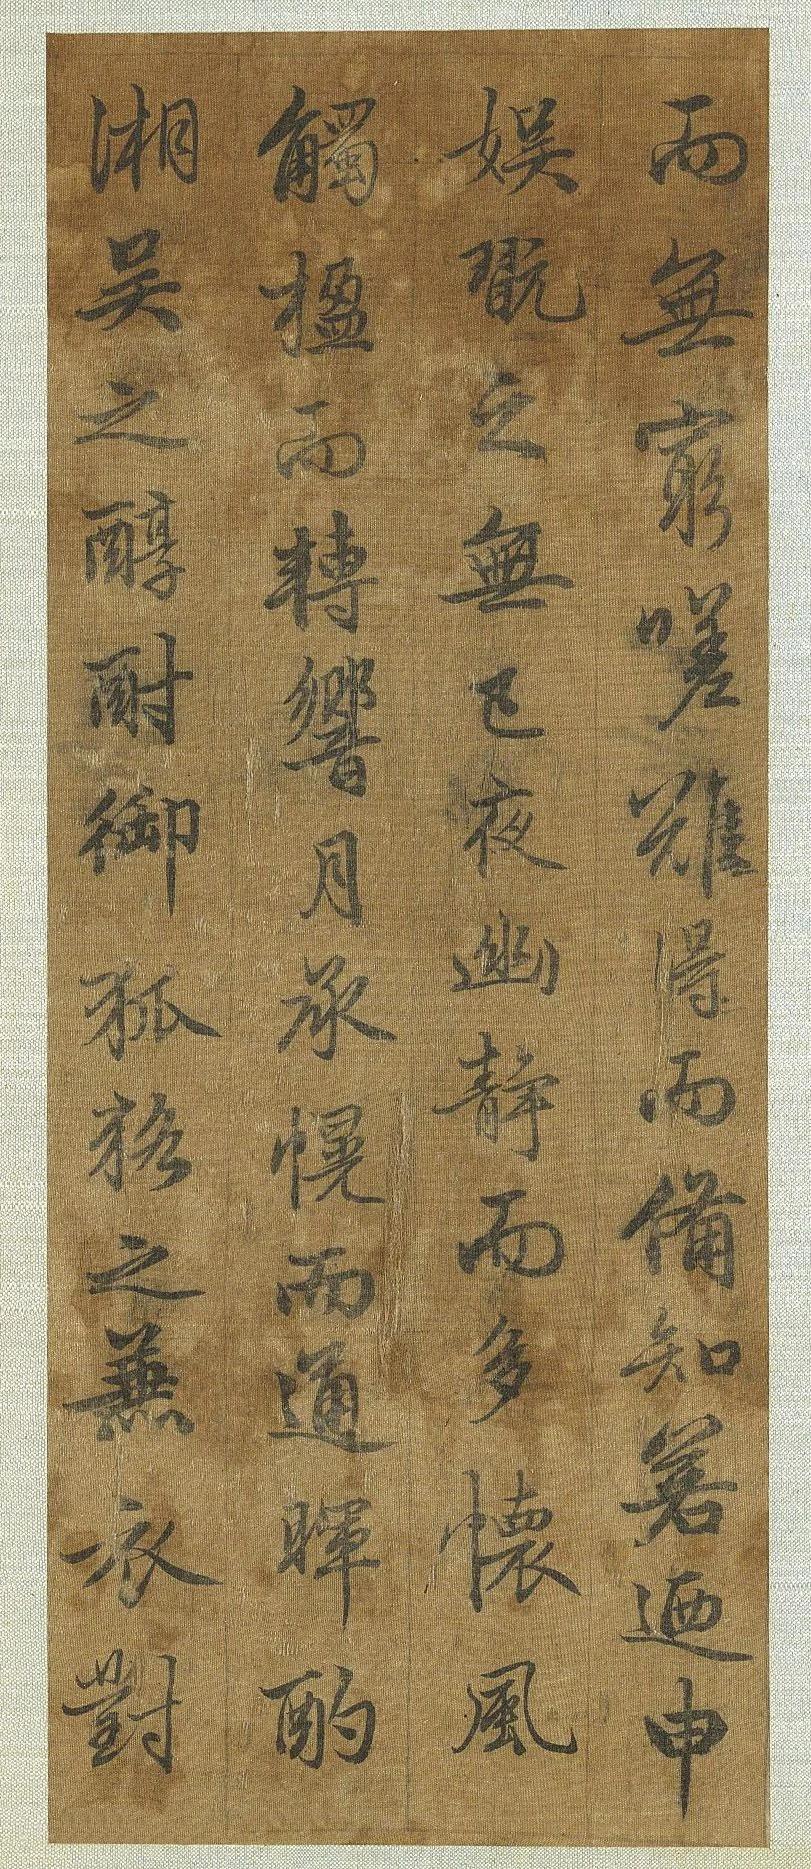 而無窮嗟難得而備知若迺申
娛翫之無已夜幽靜而多懷風
觸楹而轉響月承幌而通暉酌
湘吴之醇酎御狐狢之兼衣對